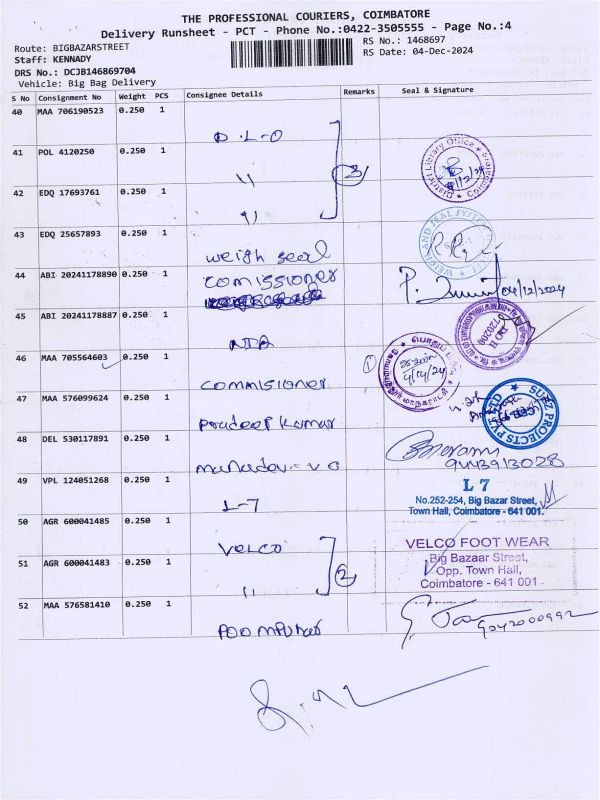 THE PROFESSIONAL COURIERS, COIMBATORE
Delivery Runsheet - PCT - Phone No.:0422-3505555 - Page No.:4
Route: BIGBAZARSTREET
RS No.: 1468697
Staff: KENNADY
RS Date: 04-Dec-2024
DRS No.: DCJB146869704
Vehicle: Big Bag Delivery
S No Consignment No Weight PCS Consignee Details Remarks Seal & Signature
40 MAA 706190523 0.250 1
D.L-O
41 POL 4120250 0.250 1
District Library Office
11
3
42 EDQ 17693761 0.250 1
11
43 EDQ 25657893 0.250 1
weigh seal
44 ABI 20241178890 0.250 1
comissioner
04/12/2024
45 ABI 20241178887 0.250 1
46 MAA 705564603 0.250 1
1
4/12/24
commisioner
47 MAA 576099624 0.250 1
SUEZ PROJECTS PVT LTD
pradeep kumar
48 DEL 530117891 0.250 1
9443913028
49 VPL 124051268 0.250 1
L 7
No.252-254, Big Bazar Street,
Town Hall, Coimbatore - 641 001.
L-7
50 AGR 600041485 0.250 1
VELCO
VELCO FOOT WEAR
51 AGR 600041483 0.250 1
Big Bazaar Street,
Opp. Town Hall,
2
Coimbatore - 641 001.
11
52 MAA 576581410 0.250 1
POOMPUHAR
9042000992